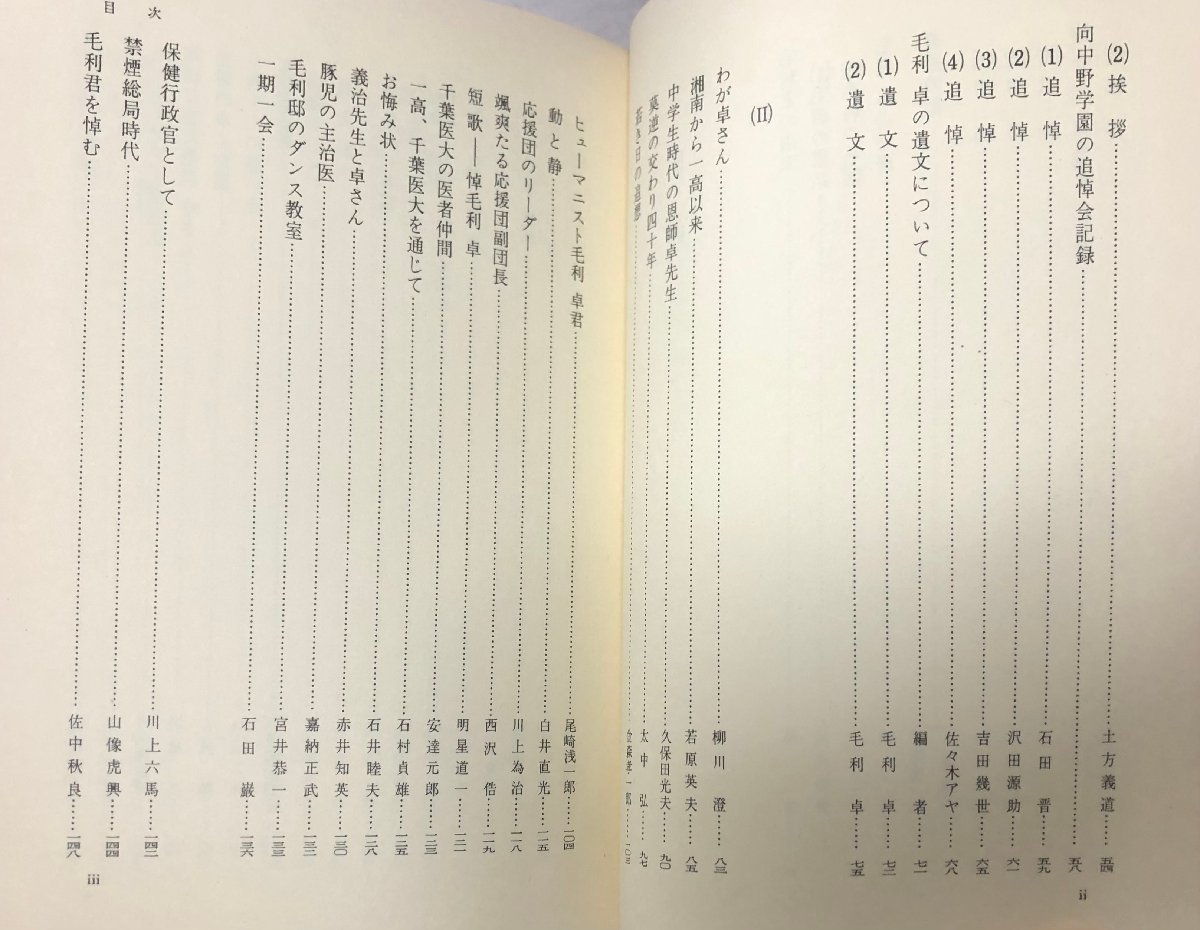 (2) 挨拶……土方義道……五四
向中野学園の追悼会記録……五八
(1) 追悼……石田晋……五九
(2) 追悼……沢田源助……六一
(3) 追悼……吉田幾世……六五
(4) 追悼……佐々木アヤ……六八
毛利 卓の遺文について……編者……七二
(1) 遺文……毛利卓……七三
(2) 遺文……毛利卓……七五
(II)
わが卓さん……柳川澄……八三
湘南から一高以来……若原英夫……八五
中学生時代の恩師卓先生……久保田光夫……九〇
莫逆の交わり四十年……太中弘……九七
若き日の追憶
ii
ヒューマニスト毛利 卓君……尾崎浅一郎……一〇四
動と静……白井直光……一一五
応援団のリーダー……川上為治……一一八
颯爽たる応援団副団長……西沢俈……一一九
短歌――悼毛利 卓……明星道一……一二一
千葉医大の医者仲間……安達元郎……一二三
一高、千葉医大を通じて……石村貞雄……一二五
お悔み状……石井睦夫……一二八
義治先生と卓さん……赤井知英……一三〇
豚児の主治医……嘉納正武……一三二
毛利邸のダンス教室……宮井恭一……一三三
一期一会……石田巌……一三六
保健行政官として……川上六馬……一四二
禁煙総局時代……山像虎興……一四四
毛利君を悼む……佐中秋良……一四八
目次
iii